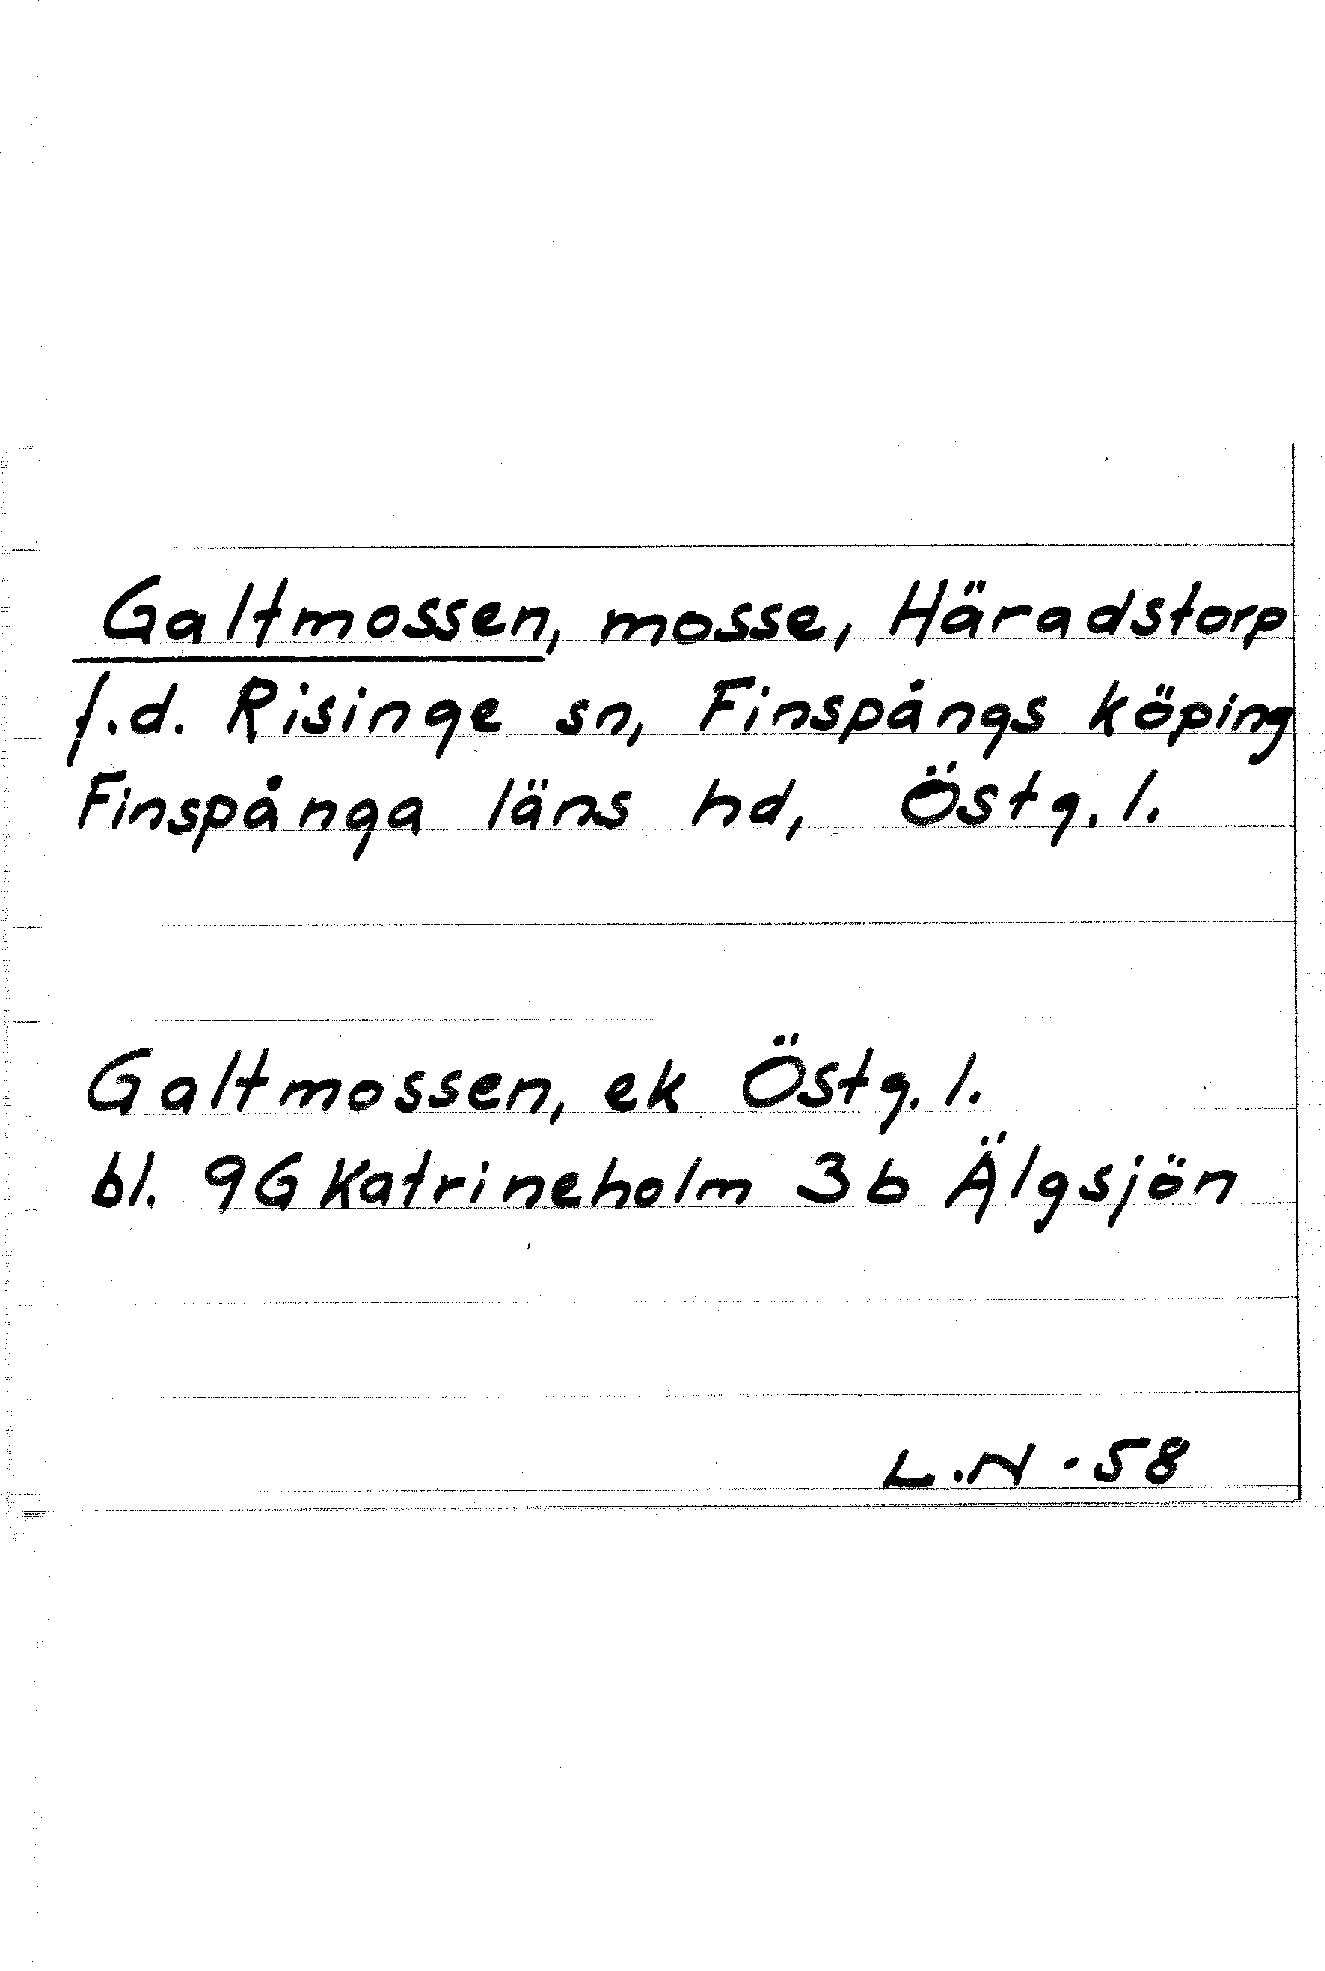 Galtmossen, mosse, Häradstorp
f.d. Risinge sn, Finspångs köping
Finspånga läns hd, Östg.l.
Galtmossen, ek Östg.l.
bl. 9G Katrineholm 3b Älgsjön
L.N - 58